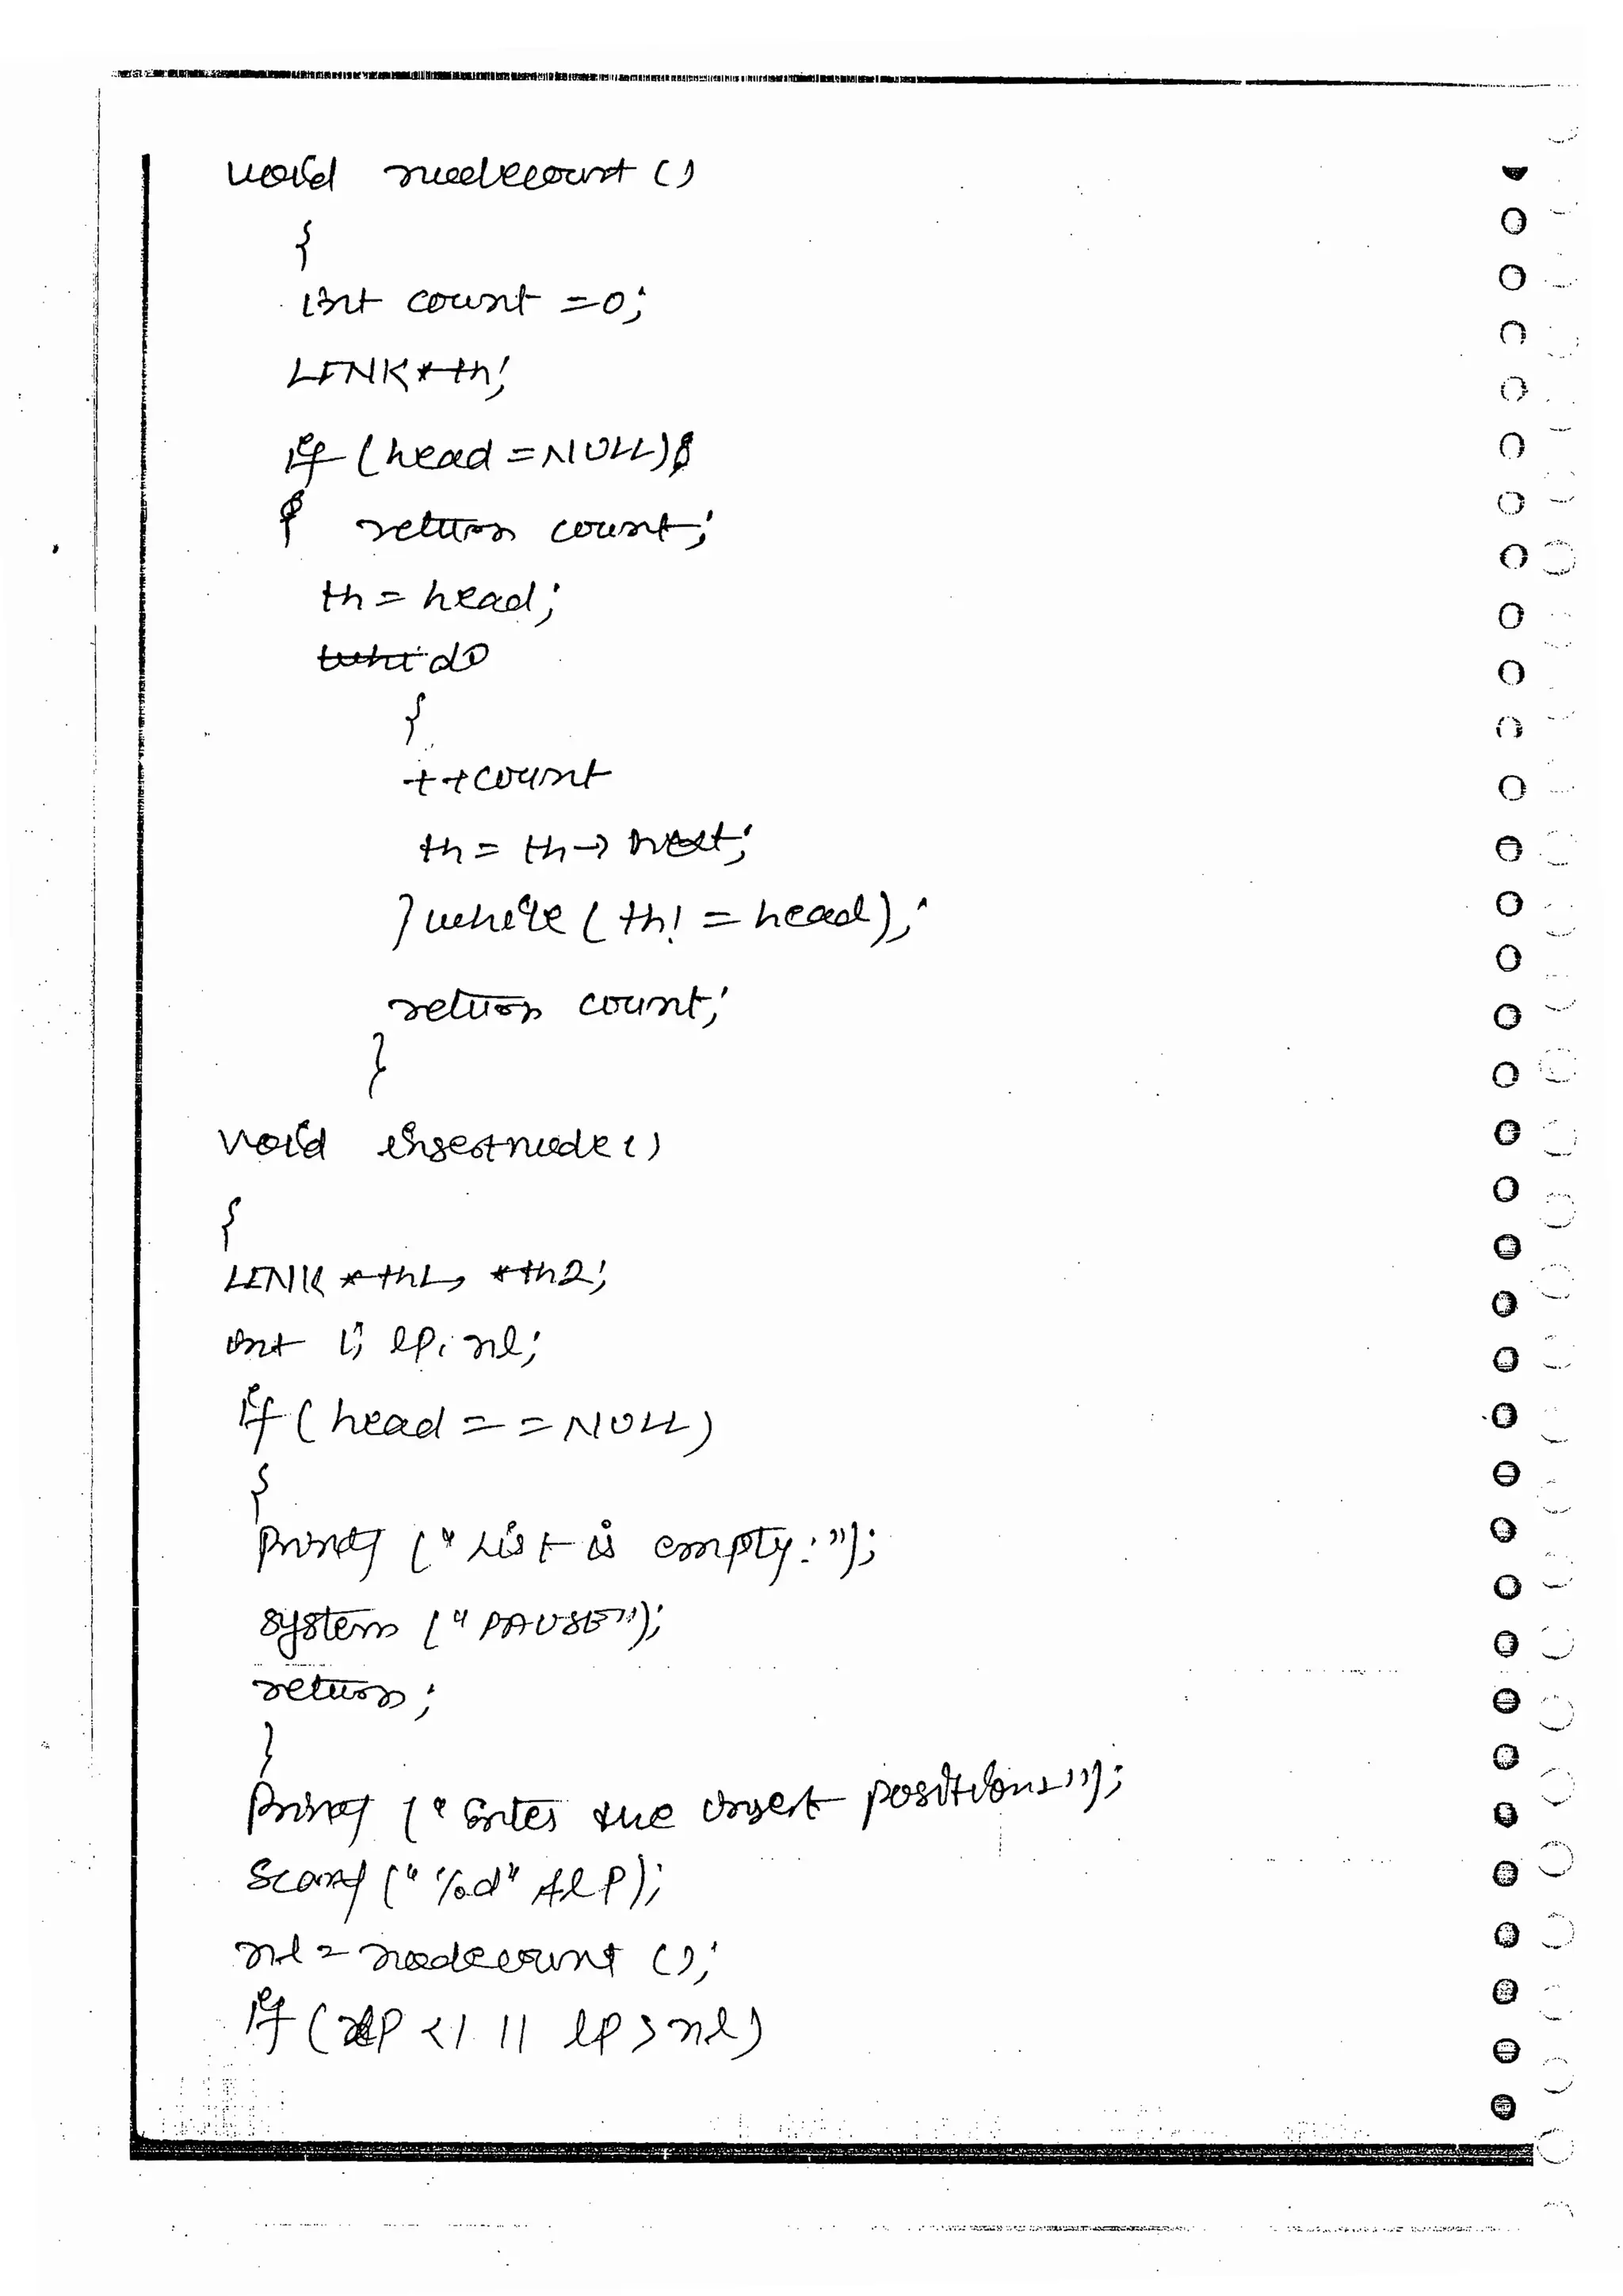 void nodecount ()
{
int count =0;
LINK *th;
if (head =NULL)
{ return count;
th = head;
do
{
++count
th = th→ next;
} while ( th! = head);
return count;
}
void insertnode ()
{
LINK *th1, *th2;
int i; lp, nl;
if ( head = = NULL)
{
Printf (" List is empty: ");
system (" PAUSE");
return ;
}
Printf (" Enter the insert positions");
Scanf (" %d" &lp);
nl = nodecount ();
if (lp < 1 || lp > nl)